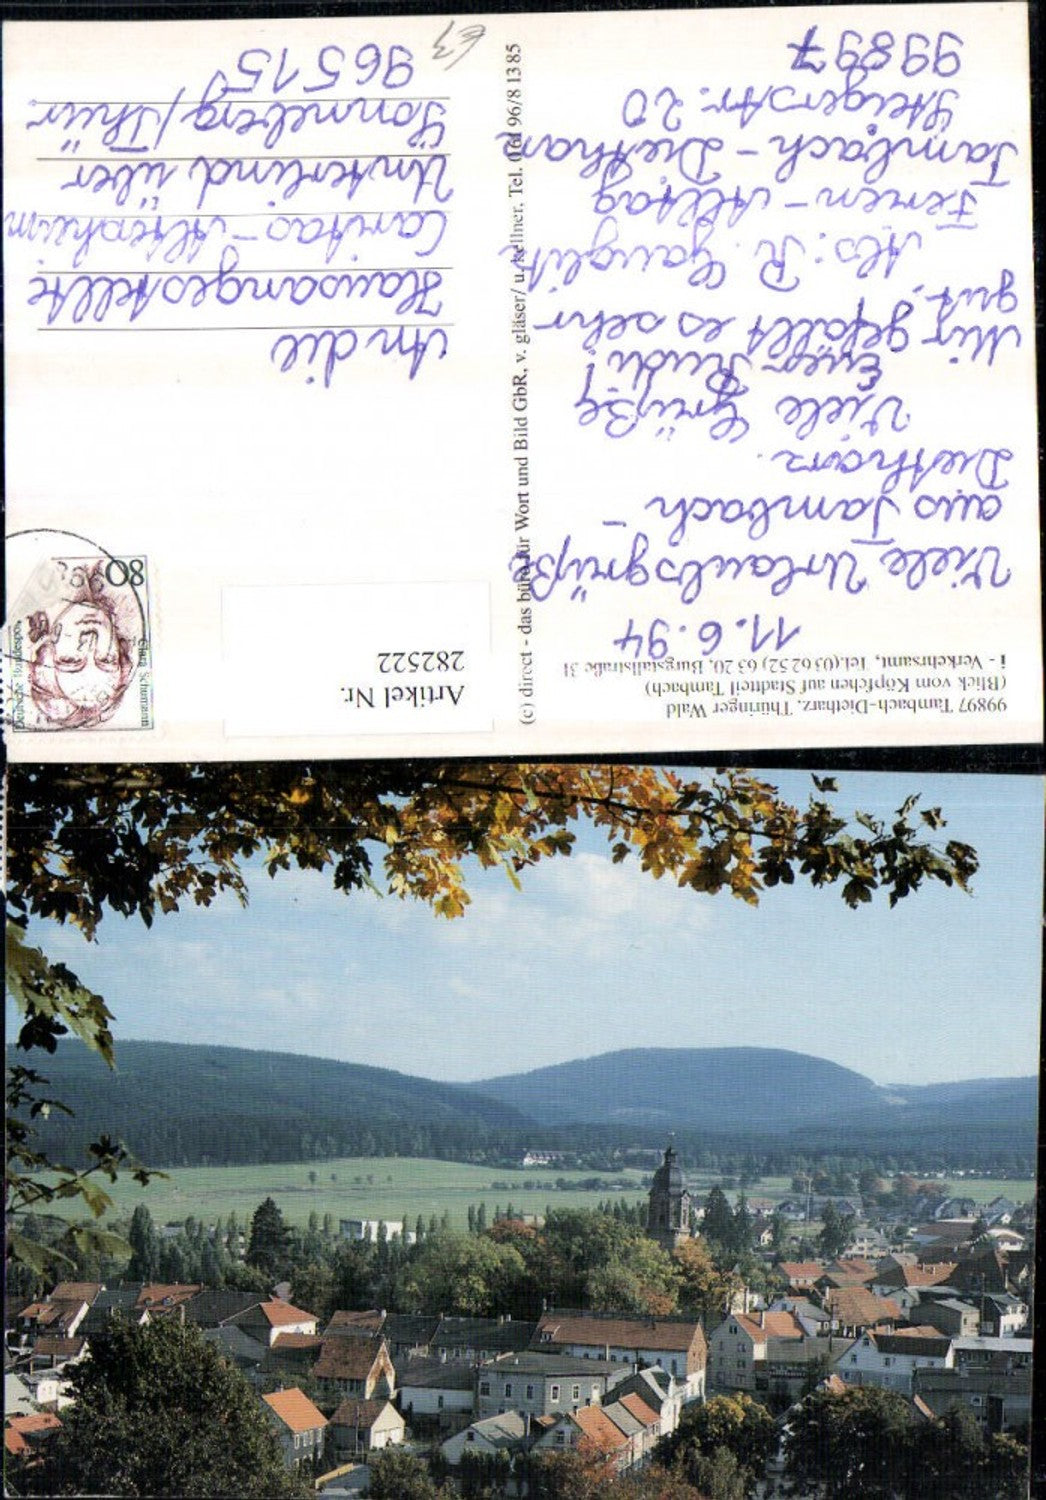 99897 Tambach-Dietharz, Thüringer Wald
(Blick vom Köpfchen auf Stadtteil Tambach)
i - Verkehrsamt, Tel.(03 62 52) 63 20, Burgstallstraße 31
11.6.94
Viele Urlaubsgrüße
aus Tambach -
Dietharz.
Viele Grüße
Euer Rudi!
Mir gefällt es sehr
gut,
Abs: R.
Ferien-Alltag
Tambach-Dietharz
Steigerstr. 20
99897
(c) direct - das büro für Wort und Bild GbR, v. gläser/ u. kellner, Tel. 96/8 13 85
Artikel Nr.
282522
80
Clara Schumann
Deutsche Bundespost
An die
Hausangestellte
Caritas-Altersheim
Unterlind über
Sonneberg/Thür
96515
€3